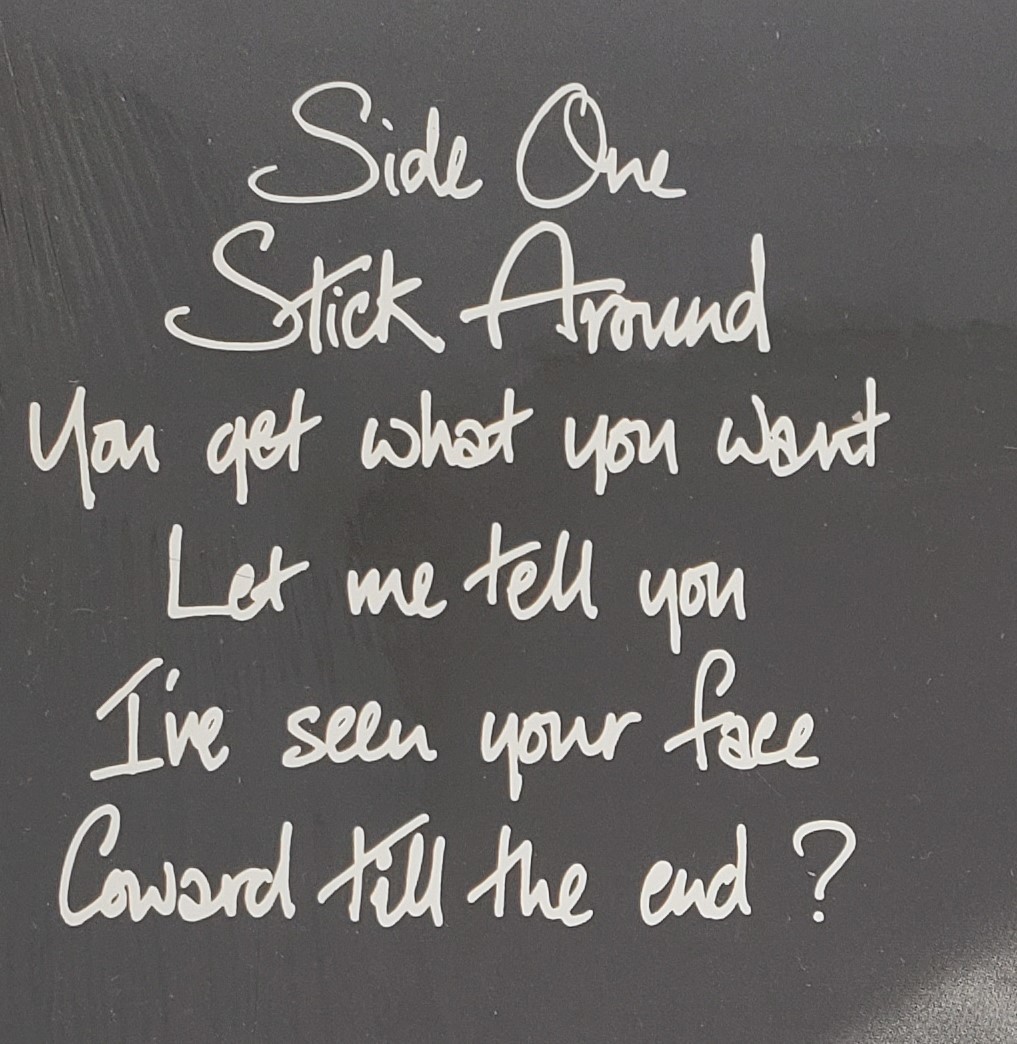 Side One
Stick Around
You get what you want
Let me tell you
I've seen your face
Coward till the end ?